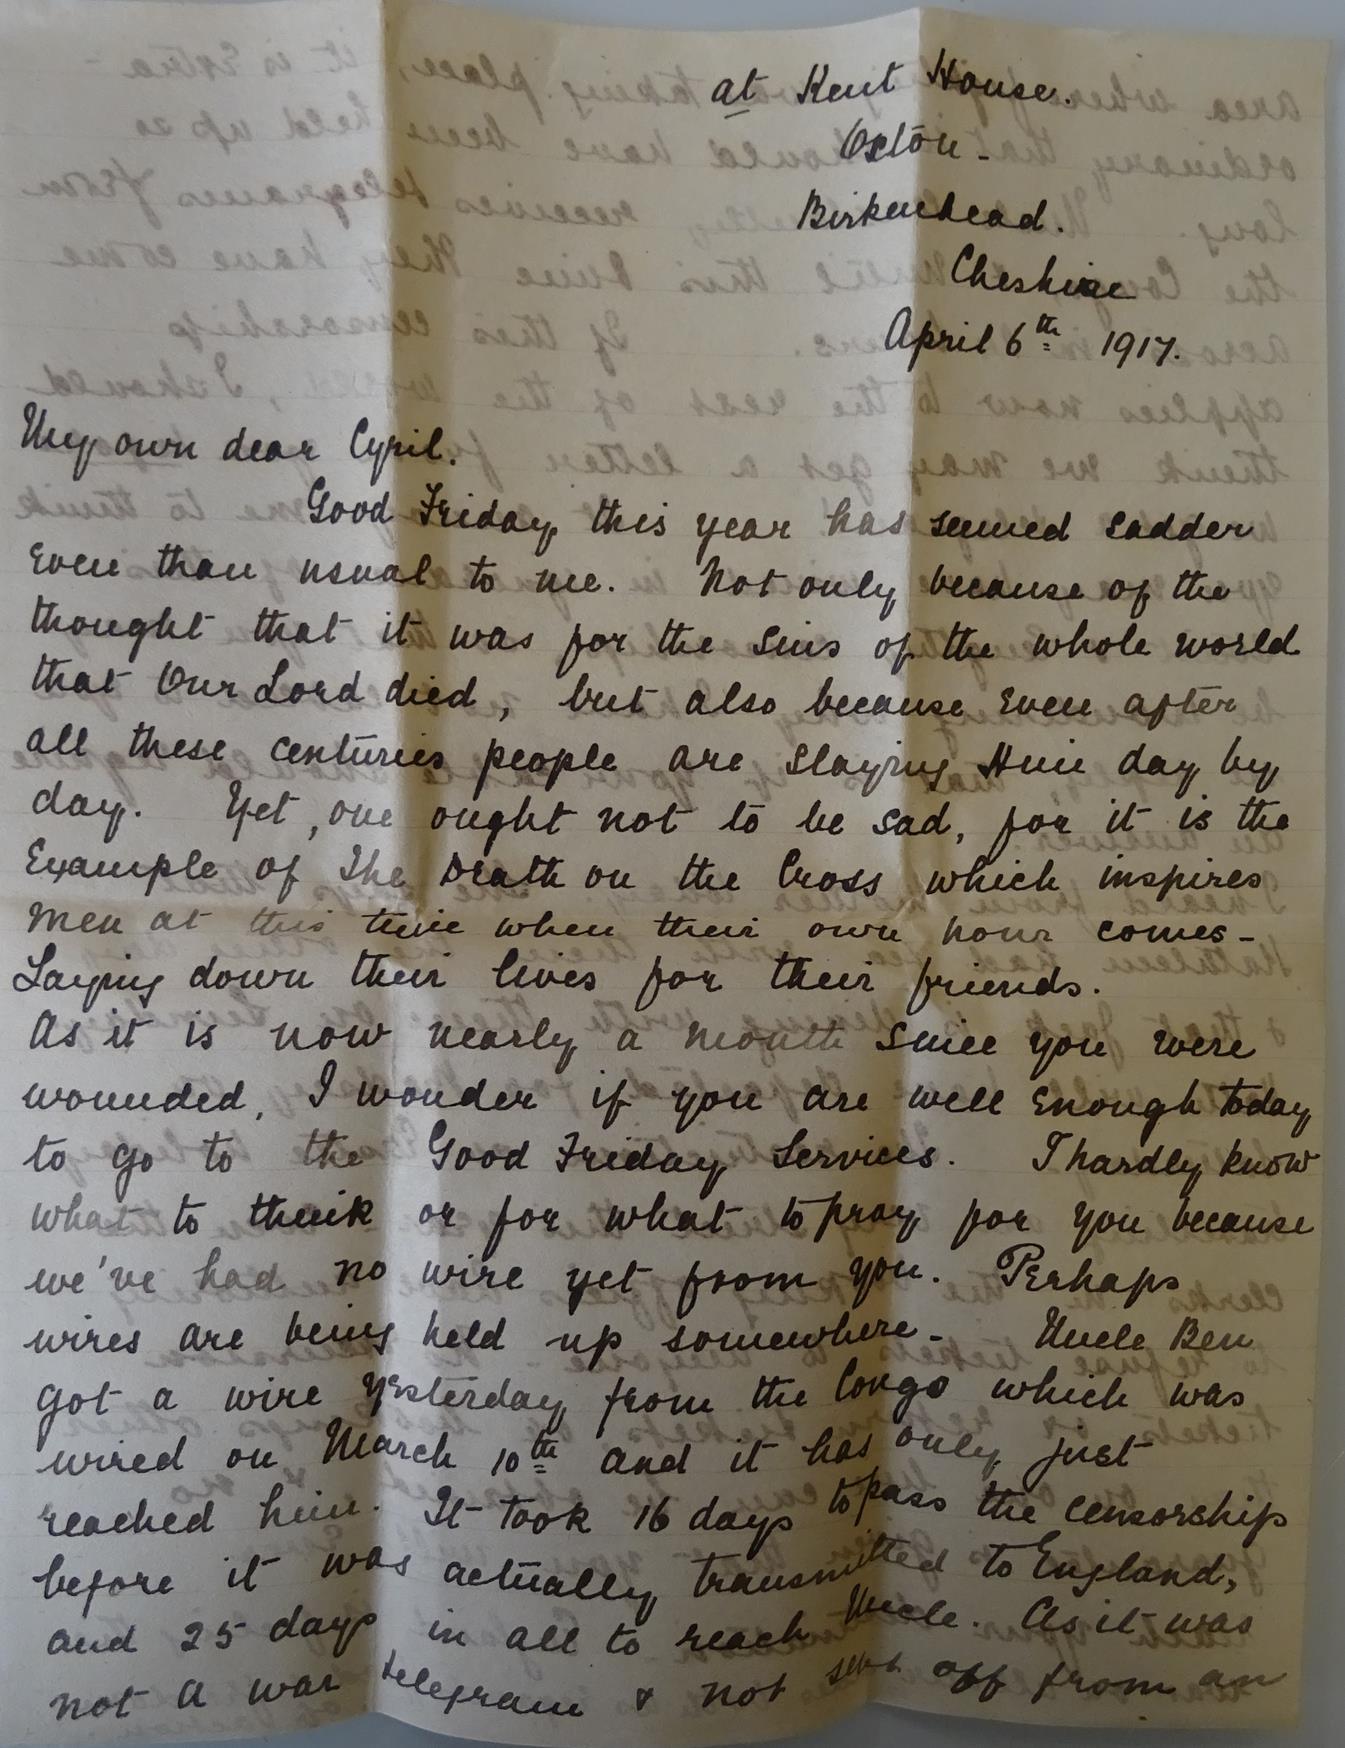 at Kent House.
Oxton -
Birkenhead.
Cheshire
April 6th 1917.
My own dear Cyril.
Good Friday this year has seemed sadder
even than usual to me. Not only because of the
thought that it was for the sins of the whole world
that Our Lord died, but also because even after
all these centuries people are slaying Him day by
day. Yet, one ought not to be sad, for it is the
Example of The Death on the Cross which inspires
men at this time when their own hour comes -
Laying down their lives for their friends.
As it is now nearly a month since you were
wounded, I wonder if you are well enough today
to go to the Good Friday Services. I hardly know
what to think or for what to pray for you because
we've had no wire yet from you. Perhaps
wires are being held up somewhere - Uncle Ben
got a wire yesterday from the Congo which was
wired on March 10th and it has only just
reached him. It took 16 days to pass the censorship
before it was actually transmitted to England,
and 25 days in all to reach Uncle. As it was
not a war telegram & not sent off from an